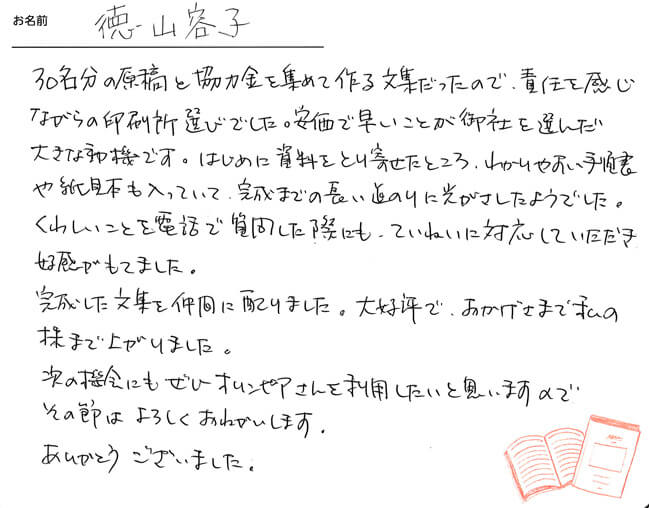 お名前 徳山容子
30名分の原稿と協力金を集めて作る文集だったので、責任を感じ
ながらの印刷所選びでした。安価で早いことが御社を選んだ
大きな動機です。はじめに資料をとり寄せたところ、わかりやすい手順書
や紙見本も入っていて、完成までの長い道のりに光がさしたようでした。
くわしいことを電話で質問した際にも、ていねいに対応していただき
好感がもてました。
完成した文集を仲間に配りました。大好評で、おかげさまで私の
株まで上がりました。
次の機会にもぜひオリンピアさんを利用したいと思いますので
その節はよろしくおねがいします。
ありがとうございました。